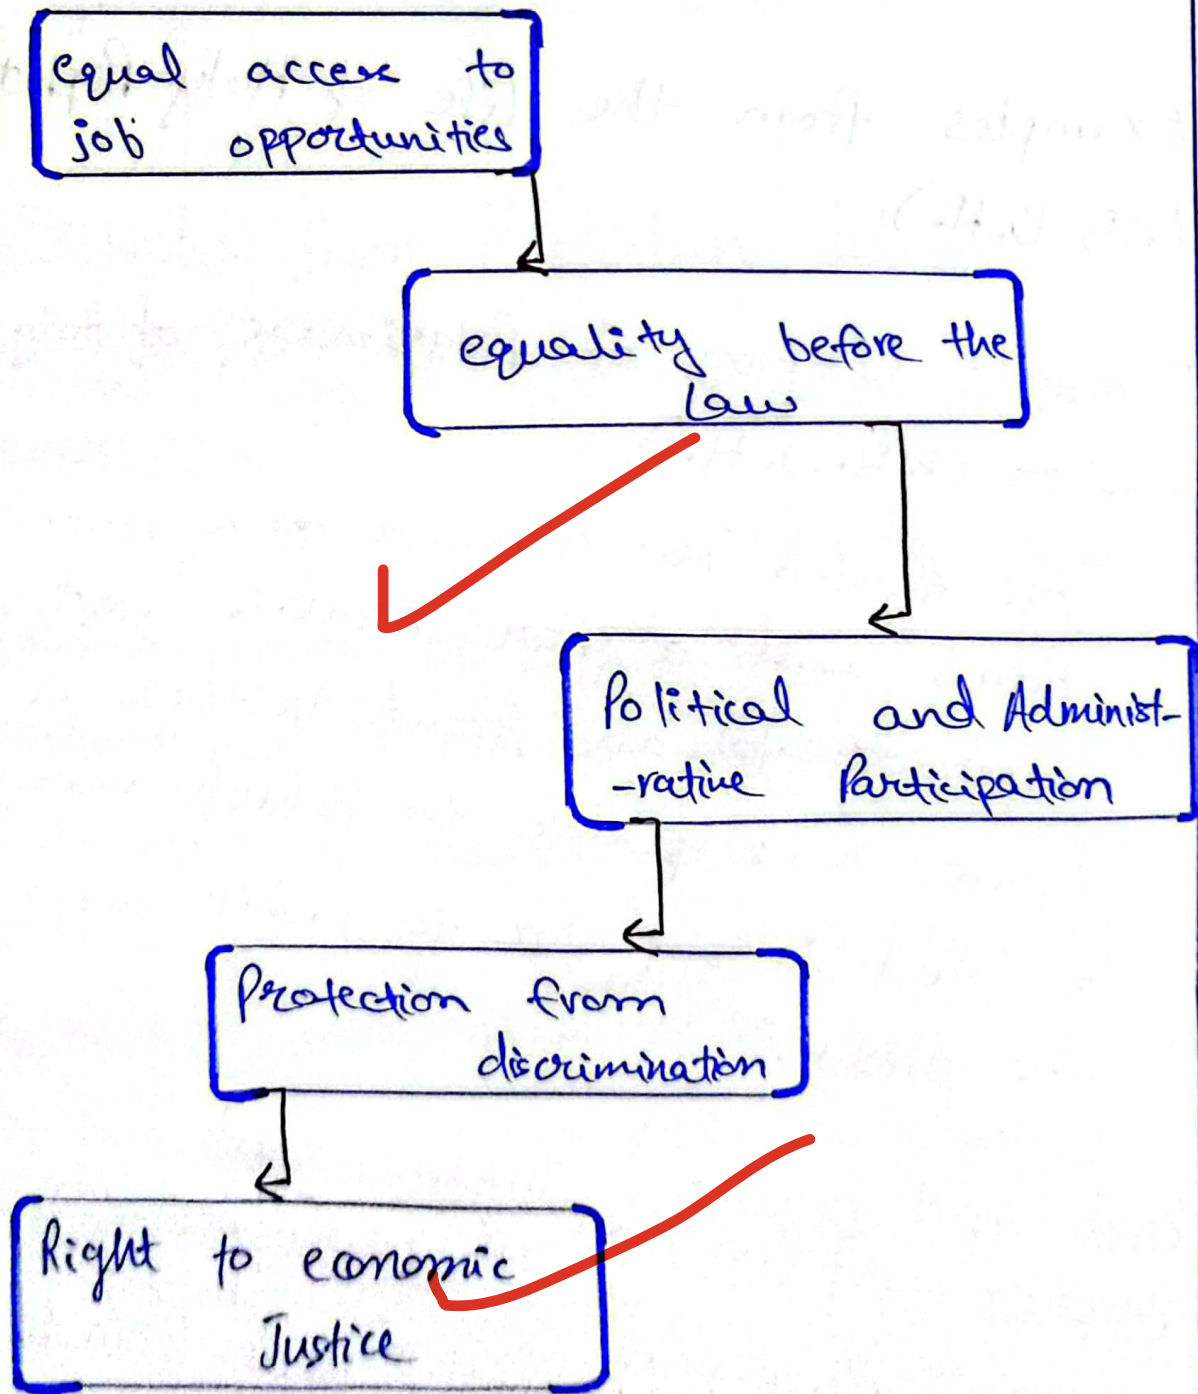 equal access to
job opportunities
equality before the
Law
Political and Administ-
-rative Participation
Protection from
discrimination
Right to economic
Justice